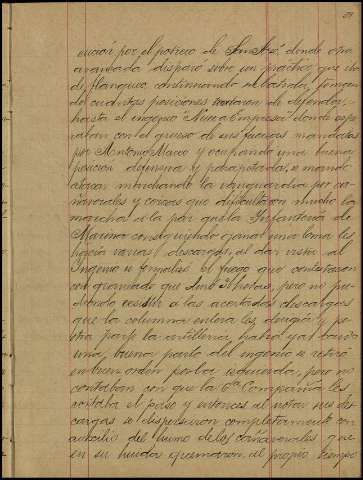 por el potrero de San José donde una
avanzada disparó sobre un práctico que iba
de flanqueo, continuando el batida, tomando
cuantas posiciones trataron de defender,
hasta el ingenio "Nueva Empresa" donde espe
raban con el grueso de sus fuerzas mandadas
por Antonio Maceo y ocupando una buena
posicion defensiva y parapetados, se mandó
atacar marchando la vanguardia por ca
ñaverales y cercas que dificultaron mucho la
marcha a la par que la Infanteria de
Marina consiguiendo ganar una loma les
hacia varias descargas, al dar vista al
Ingenio se el fuego que contestaron
con granizado que duró horas, pero no pu
diendo resistir a las acertadas descargas
que la columna entera les dirigia y por
otra parte la artilleria, habia ya
buena parte del ingenio se retiró
en buen orden por la izquierda, pero no
contaban con que la 6ª Compañia les
cortaba el paso y entonces al notar sus des
cargas se dispersaron completamente con
auxilio del humo de los cañaverales que
en su huida quemaron, al propio tiempo